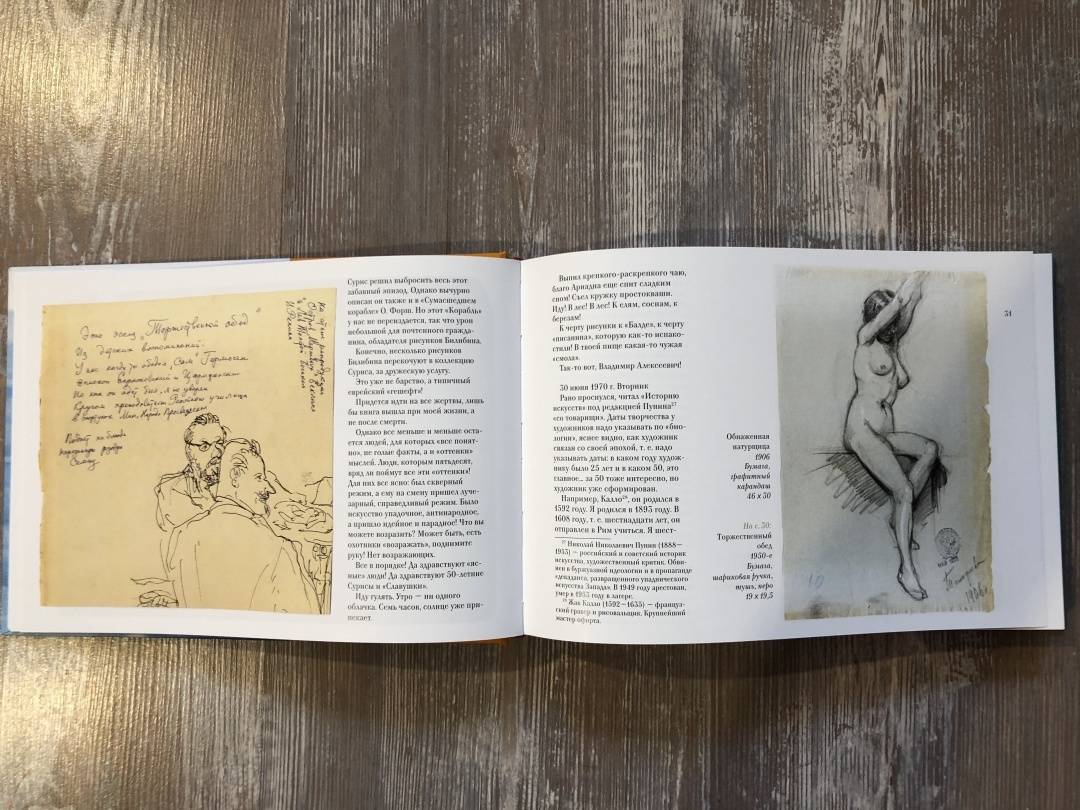 Это эскиз „Торжественный обед"
Из детских воспоминаний.
епископ Саратовский и Царицынский
Сурис решил выбросить весь этот
забавный эпизод. Однако вычурно
описан он также и в «Сумасшедшем
корабле» О. Форш. Но этот «Корабль»
у нас не переиздается, так что урон
небольшой для почтенного гражда-
нина, обладателя рисунков Билибина.
Конечно, несколько рисунков
Билибина перекочуют в коллекцию
Суриса, за дружескую услугу.
Это уже не барство, а типичный
еврейский «гешефт»!
Придется идти на все жертвы, лишь
бы книга вышла при моей жизни, а
не после смерти.
Однако все меньше и меньше оста-
ется людей, для которых «все понят-
но», не голые факты, а и «оттенки»
мыслей. Люди, которым пятьдесят,
вряд ли поймут все эти «оттенки»!
Для них все ясно: был скверный
режим, а ему на смену пришел луче-
зарный, справедливый режим. Было
искусство упадочное, антинародное,
а пришло идейное и парадное! Что вы
можете возразить? Может быть, есть
охотники «возражать», поднимите
руку! Нет возражающих.
Все в порядке! Да здравствуют «яс-
ные» люди! Да здравствуют 50-летние
Сурисы и «Славушки».
Иду гулять. Утро — ни одного
облачка. Семь часов, солнце уже при-
пекает.
Выпил крепкого-раскрепкого чаю,
благо Ариадна еще спит сладким
сном! Съел кружку простокваши.
Иду! В лес! В лес! К елям, соснам, к
березам!
К черту рисунки к «Балде», к черту
«писанина», которую как-то испако-
стили! В твоей пище какая-то чужая
«смола».
Так-то вот, Владимир Алексеевич!
30 июня 1970 г. Вторник
Рано проснулся, читал «Историю
искусств» под редакцией Пунина27
«со товарищи». Даты творчества у
художников надо указывать по «био-
логии», яснее видно, как художник
связан со своей эпохой, т. е. надо
указывать даты: в каком году худож-
нику было 25 лет и в каком 50, это
главное... за 50 тоже интересно, но
художник уже сформирован.
Например, Калло28, он родился в
1592 году. Я родился в 1893 году. В
1608 году, т. е. шестнадцати лет, он
отправлен в Рим учиться. Я шест-
27 Николай Николаевич Пунин (1888—
1953) — российский и советский историк
искусства, художественный критик. Обви-
нен в буржуазной идеологии и в пропаганде
«декаданса, развращенного упаднического
искусства Запада». В 1949 году арестован,
умер в 1953 году в лагере.
28 Жак Калло (1592—1635) — француз-
ский гравер и рисовальщик. Крупнейший
мастер офорта.
31
Обнаженная
натурщица
1906
Бумага,
графитный
карандаш
46 х 30
На с. 30:
Торжественный
обед
1950-е
Бумага,
шариковая ручка,
тушь, перо
19 х 19,5
1906